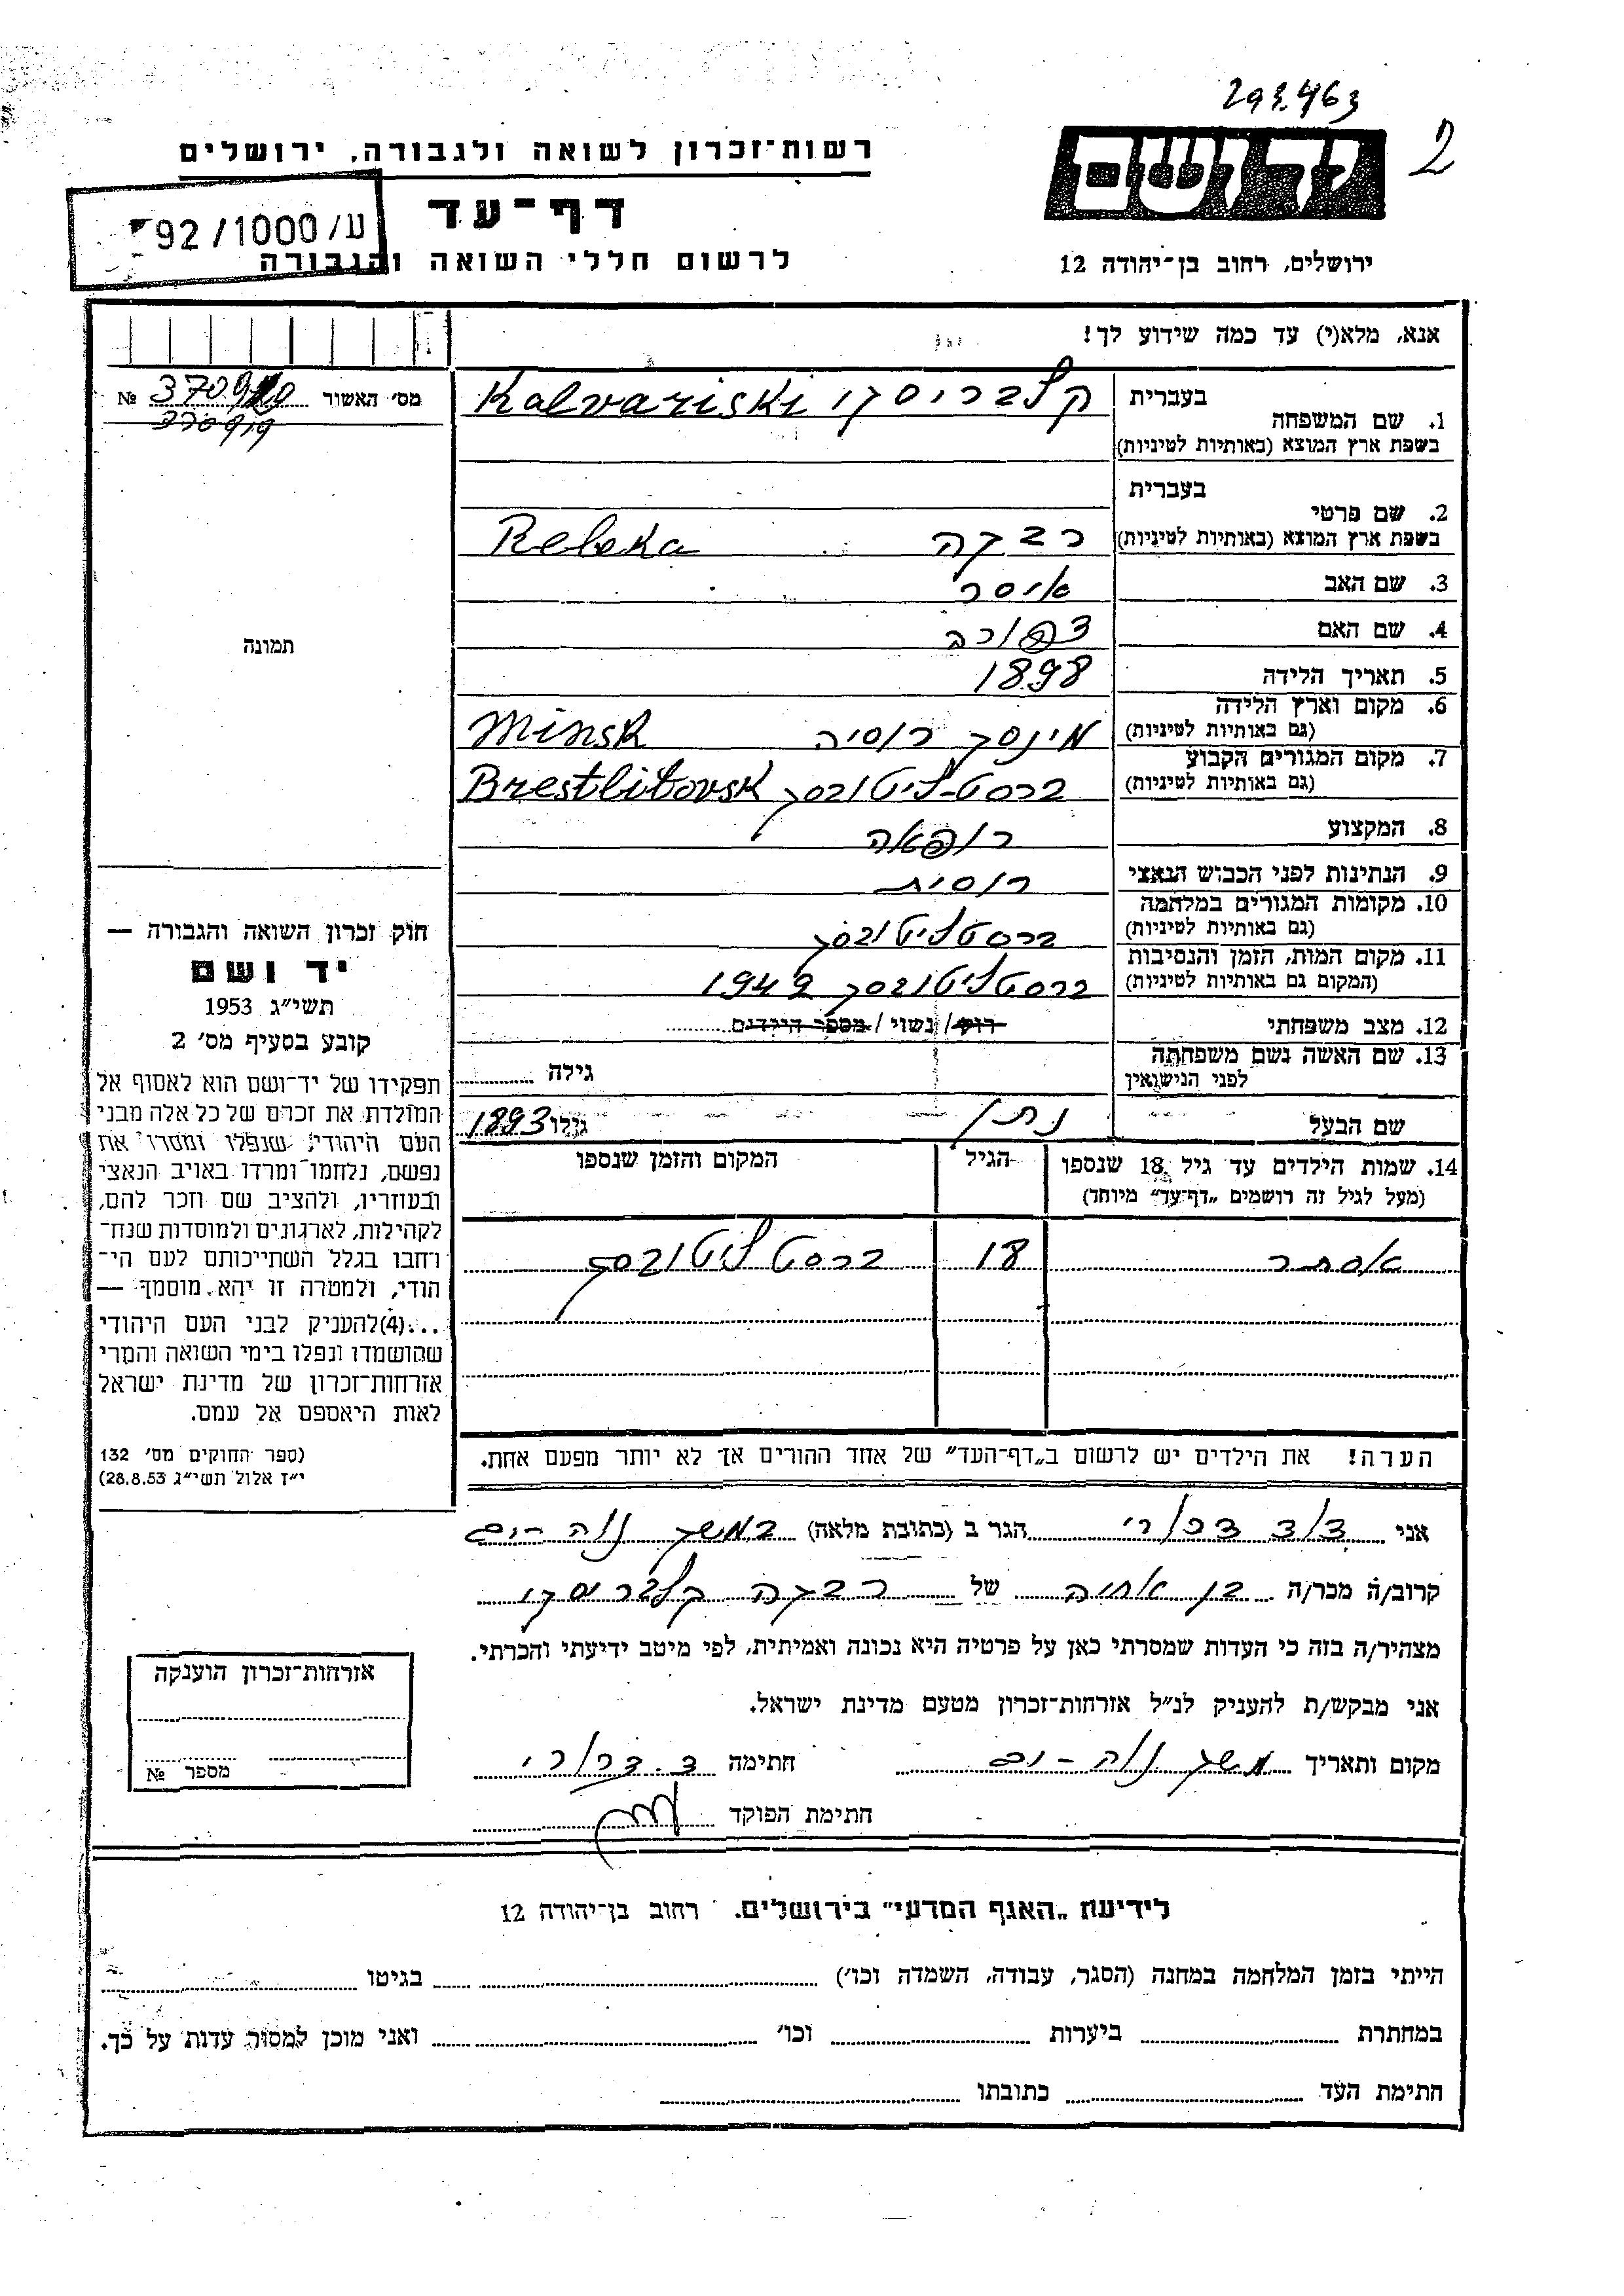 293.463
2
רשות־זכרון לשואה ולגבורה, ירושלים
יד ושם
דף־עד
ע/1000/92
לרשום חללי השואה והגבורה
ירושלים, רחוב בן־יהודה 12
אנא, מלא(י) עד כמה שידוע לך!
מס׳ האשור № 370920
370919
תמונה
בעברית
1. שם המשפחה
בשפת ארץ המוצא (באותיות לטיניות)
קלבריסקי Kalvariski
בעברית
2. שם פרטי
בשפת ארץ המוצא (באותיות לטיניות)
רבקה Rebeka
3. שם האב איסר
4. שם האם צפורה
5. תאריך הלידה 1898
6. מקום וארץ הלידה
(גם באותיות לטיניות) מינסק רוסיה Minsk
7. מקום המגורים הקבוע
(גם באותיות לטיניות) ברסט-ליטובסק Brestlitovsk
8. המקצוע רופאה
9. הנתינות לפני הכבוש הנאצי רוסית
10. מקומות המגורים במלחמה
(גם באותיות לטיניות) ברסטליטובסק
11. מקום המות, הזמן והנסיבות
(המקום גם באותיות לטיניות) ברסטליטובסק 1942
12. מצב משפחתי רוק/ נשוי / מספר הילדים
13. שם האשה ושם משפחתה
לפני הנישואין גילה
שם הבעל נתן גילו 1893
14. שמות הילדים עד גיל 18 שנספו הגיל המקום והזמן שנספו
(מעל לגיל זה רושמים „דף־עד״ מיוחד)
אסתר 18 ברסט ליטובסק
הערה! את הילדים יש לרשום ב„דף־העד״ של אחד ההורים אך לא יותר מפעם אחת.
חוק זכרון השואה והגבורה —
יד ושם
תשי״ג 1953
קובע בסעיף מס׳ 2
תפקידו של יד־ושם הוא לאסוף אל
המולדת את זכרם של כל אלה מבני
העם היהודי, שנפלו ומסרו את
נפשם, נלחמו ומרדו באויב הנאצי
ובעוזריו, ולהציב שם וזכר להם,
לקהילות, לארגונים ולמוסדות שנח־
רבו בגלל השתייכותם לעם הי־
הודי, ולמטרה זו יהא מוסמך —
...(4)להעניק לבני העם היהודי
שהושמדו ונפלו בימי השואה והמרי
אזרחות־זכרון של מדינת ישראל
לאות היאספם אל עמם.
(ספר החוקים מס׳ 132
י״ז אלול תשי״ג 28.8.53)
אני דוד דרורי הגר ב (כתובת מלאה) במשק נוה-ים
קרוב/ה מכר/ה בן אחיה של רבקה קלבריסקי
מצהיר/ה בזה כי העדות שמסרתי כאן על פרטיה היא נכונה ואמיתית, לפי מיטב ידיעתי והכרתי.
אני מבקש/ת להעניק לנ״ל אזרחות־זכרון מטעם מדינת ישראל.
מקום ותאריך משק נוה-ים חתימה ד. דרורי
חתימת הפוקד
אזרחות־זכרון הוענקה
מספר №
לידיעת „האגף המדעי״ בירושלים. רחוב בן־יהודה 12
הייתי בזמן המלחמה במחנה (הסגר, עבודה, השמדה וכו׳) בגיטו
במחתרת ביערות וכו׳ ואני מוכן למסור עדות על כך.
חתימת העד כתובתו